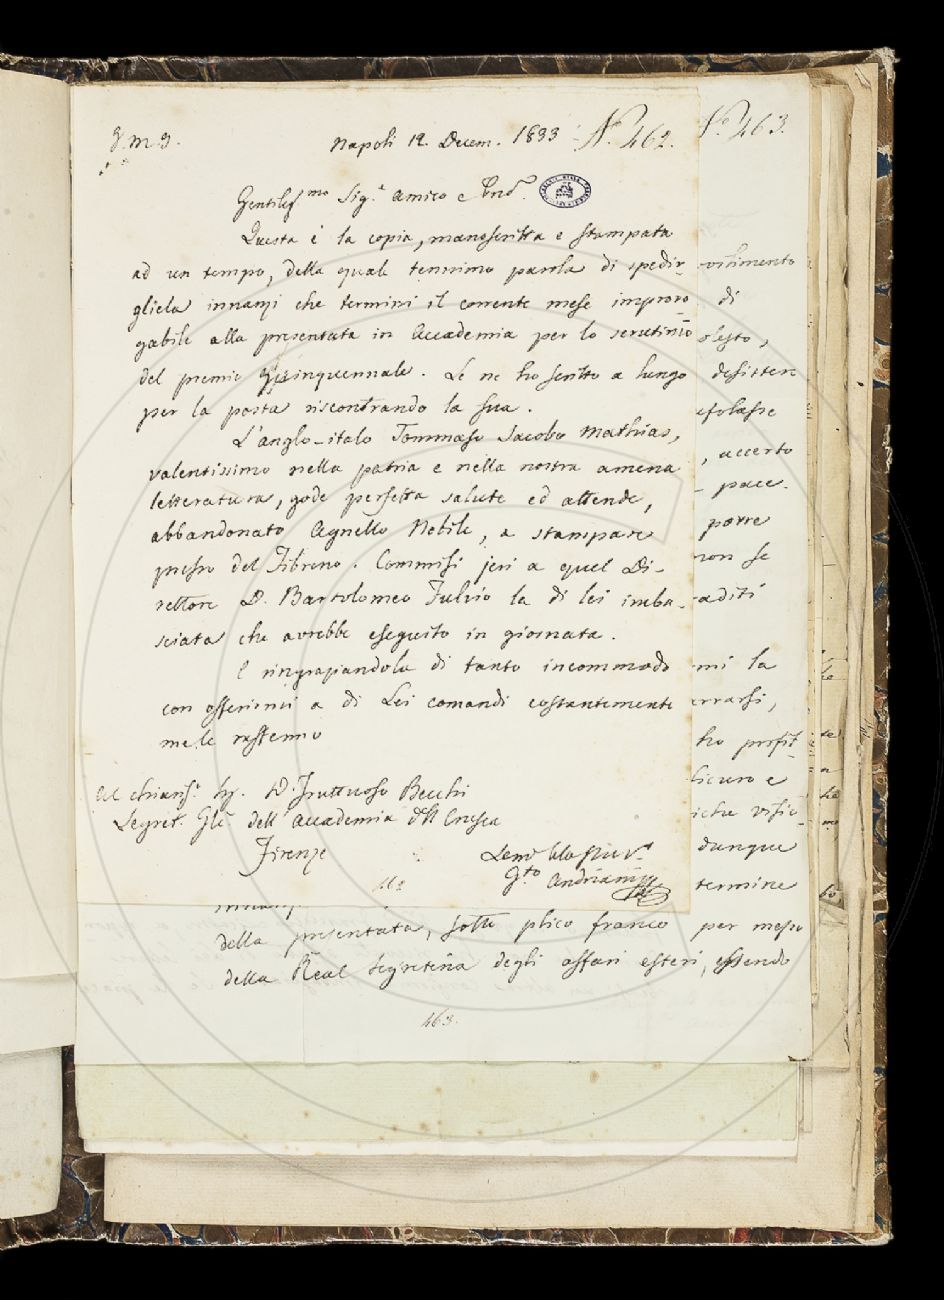 Napoli 12. Decem. 1833
N.° 462.
N.° 463.
Gentiliss.mo Sig.r Amico e
Questa è la copia, manoscritta e stampata
ad un tempo, della quale tennimo parola di spedir-
gliela innanzi che termini il corrente mese improro
gabile alla presentata in Accademia per lo scrutinio
del premio quinquennale. Le ne ho scritto a lungo
per la posta riscontrando la sua.
L'anglo-italo Tommaso Jacobo Mathias,
valentissimo nella patria e nella nostra amena
letteratura, gode perfetta salute ed attende,
abbandonato Agnello Nobile, a stampare
presso del Fibreno. Commisi jeri a quel Di-
rettore D. Bartolomeo Fulvio la di lei imba-
sciata che avrebbe eseguito in giornata.
E ringraziandola di tanto incommodo
con offerirmi a di Lei comandi costantemente
me le raffermo
Al chiariss.o Sig. D. Fruttuoso Becchi
Segret. Gle dell'Accademia della Crusca
Firenze
Andria
462
vilimento
di
olesto,
desistere
, accerto
pace.
porre
non se
raditi
mi la
rrarsi,
ho profit
sicuro e
dunque
termine
della presentata, sotto plico franco per mezzo
della Real Segreteria degli affari esteri, essendo
463.